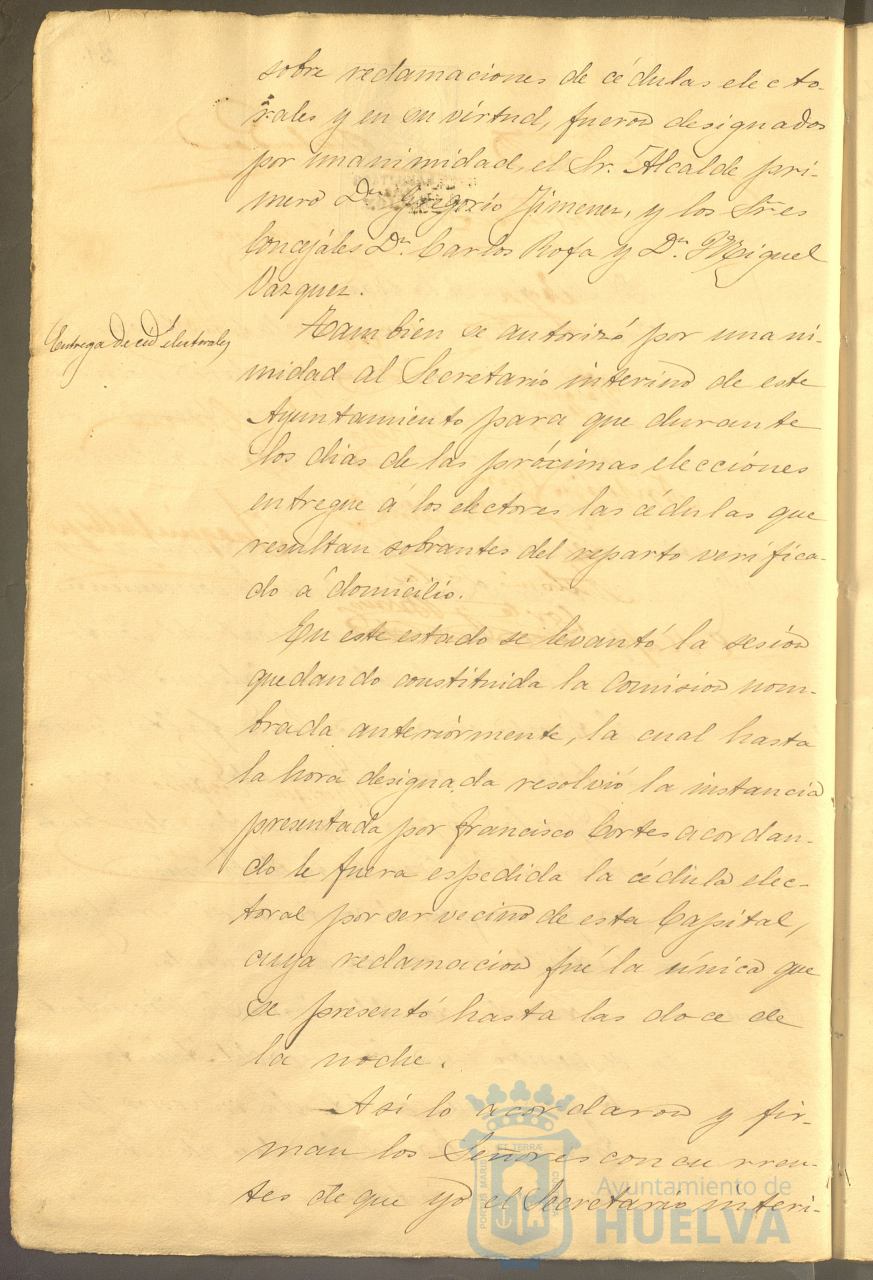 sobre reclamaciones de cédulas electo-
rales y en su virtud, fueron designados
por unanimidad, el Sr. Alcalde pri-
mero Dn. Gregorio Jimenez, y los Sres
Concejáles Dn. Carlos Rofa y Dn. Miguel
Vazquez.
Entrega de céds electorales
Tambien se autorizó por unani-
midad al Secretario interino de este
Ayuntamiento para que durante
los dias de las próximas elecciónes
entregue á los electores las cédulas que
resultan sobrantes del reparto verifica-
do a domicilio.
En este estado se levantó la sesión
quedando constituida la Comision nom-
brada anteriórmente, la cual hasta
la hora designada resolvió la instancia
presentada por Francisco Cortes acordan-
do le fuera espedida la cédula elec-
toral por ser vecino de esta Capital,
cuya reclamacion fué la única que
se presentó hasta las doce de
la noche.
Asi lo acordaron y fir-
man los Señores concurren-
tes de que yo el Secretario interi-
PORTUS MARIS ET TERRÆ CUSTODIA
Ayuntamiento de
HUELVA